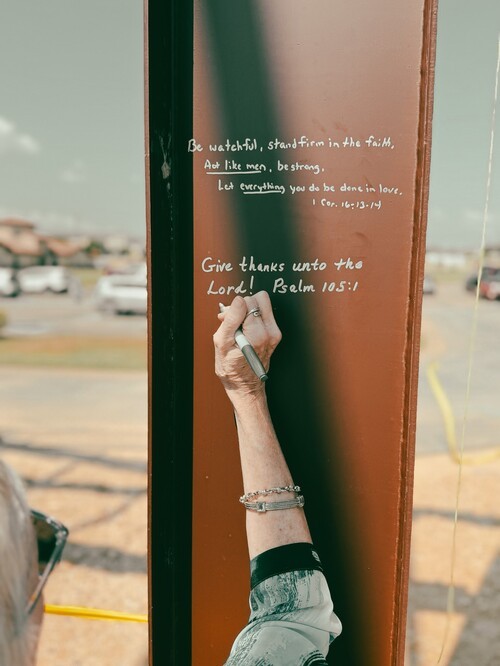 Be watchful, stand firm in the faith,
Act like men, be strong.
Let everything you do be done in love.
1 Cor. 16:13-14
Give thanks unto the
Lord! Psalm 105:1